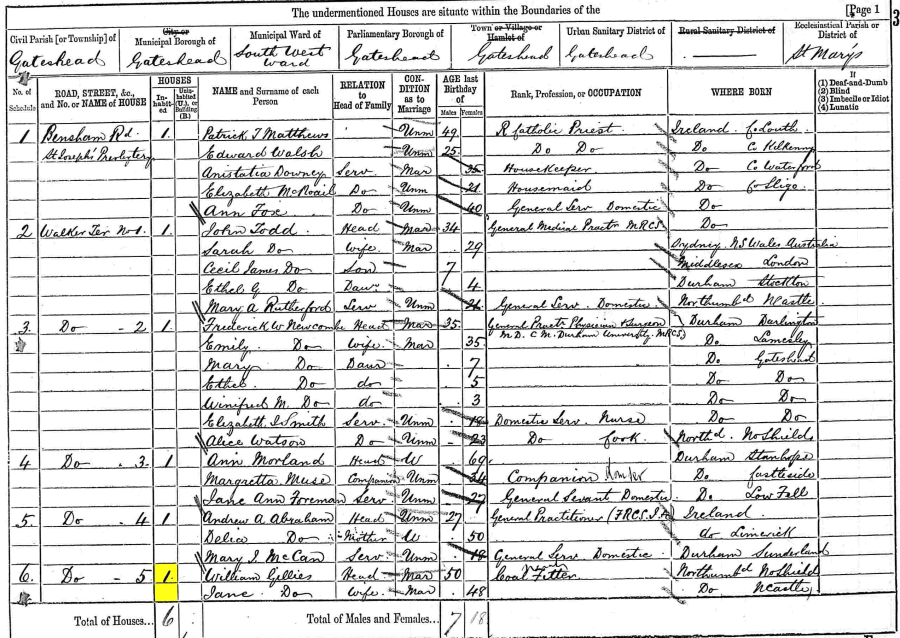 The undermentioned Houses are situate within the Boundaries of the
[Page 1
3
Civil Parish [or Township] of
City or Municipal Borough of
Municipal Ward of
Parliamentary Borough of
Town or Village or Hamlet of
Urban Sanitary District of
Rural Sanitary District of
Ecclesiastical Parish or District of
Gateshead Gateshead South West Ward Gateshead Gateshead Gateshead St Marys
No. of Schedule
ROAD, STREET, &c., and No. or NAME of HOUSE
HOUSES
Inhabited
Uninhabited (U.), or Building (B.)
NAME and Surname of each Person
RELATION to Head of Family
CONDITION as to Marriage
AGE last Birthday of
Males
Females
Rank, Profession, or OCCUPATION
WHERE BORN
If
(1) Deaf-and-Dumb
(2) Blind
(3) Imbecile or Idiot
(4) Lunatic
1 Bensham Rd. 1. Patrick T Matthews Unm 49 R Catholic Priest Ireland Co Louth
St Joseph's Presbytery Edward Walsh Unm 25 Do Do Do Co Kilkenny
Anistatia Downey Serv Mar 35 Housekeeper Do Co Waterford
Elizabeth Do Unm 21 Housemaid Do Co Sligo
Ann Fox Do Unm 40 General Serv Domestic Do
2 Walker Ter No 1. 1. John Todd Head Mar 34 General Medical Practr MRCS Do
Sarah Do Wife Mar 29 Sydney NS Wales Australia
Cecil James Do Son 7 Middlesex London
Ethel G Do Daur 4 Durham Stockton
Mary A Rutherford Serv Unm 21 General Serv. Domestic Northumbd NCastle
3. Do - 2 1 Frederick W Newcombe Head Mar 35. General Practr Physician & Surgeon Durham Darlington
Emily Do Wife Mar 35 M.D. C.M. Durham University MRCS Do Lamesley
Mary Do Daur 7 Do Gateshead
Ethel Do do 5 Do Do
Winifred M. Do do 3 Do Do
Elizabeth I Smith Serv Unm 19 Domestic Serv. Nurse Do Do
Alice Watson Do Unm 23 Do Cook Northd. No Shields
4 Do - 3. 1 Ann Morland Head W 69 Durham Stanhope
Margretta Muse Companion Unm 34 Companion Do. Castleside
Jane Ann Foreman Serv Unm 27 General Sevant Domestic Do Low Fell
5. Do - 4 1 Andrew A Abraham Head Unm 27 General Practitioner (FRCS. Ireland
Delia Do Mother W 50 do Limerick
Mary J. McCan Serv Unm 19 General Serv Domestic Durham Sunderland
6. Do - 5 1. William Gillies Head Mar 50 Coal Fitter Northumbd No Shield
Jane Do Wife Mar 48 Do NCastle
Total of Houses... 6
Total of Males and Females... 7 18